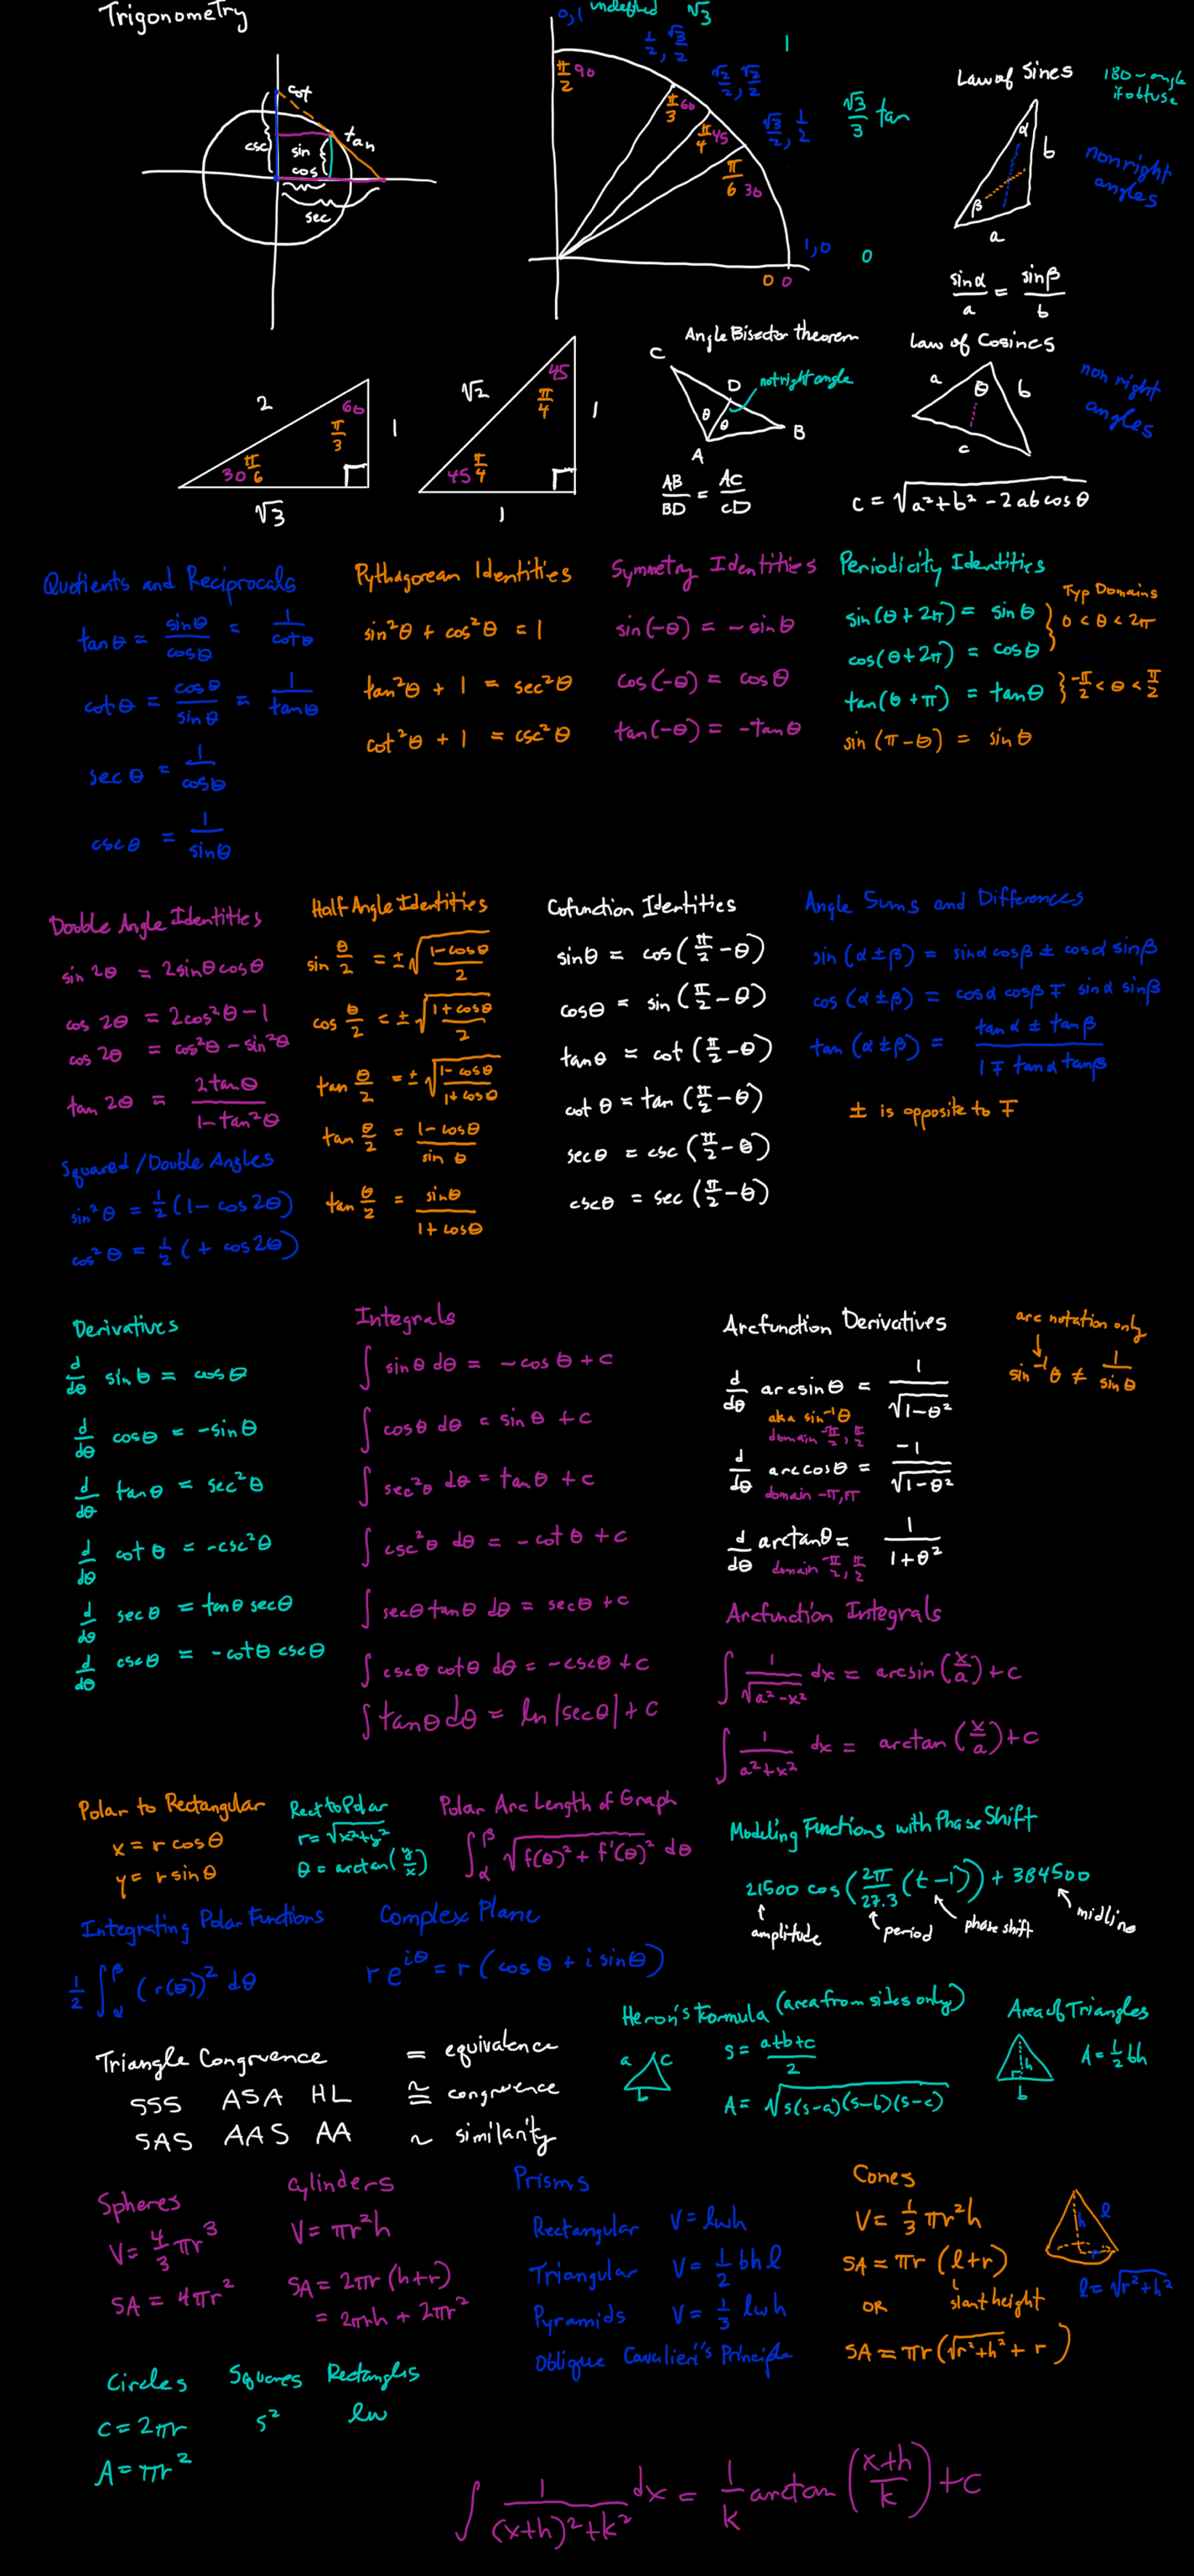 Trigonometry
cot
tan
csc
sin
cos
sec
0,1 undefined √3
1/2, √3/2
1
√2/2, √2/2
√3/2, 1/2
√3/3 tan
π/2 90
π/3 60
π/4 45
π/6 30
1,0 0
0 0
Law of Sines
180-angle
if obtuse
α
b
β
a
nonright
angles
sinα/a = sinβ/b
2
60
π/3
1
30 π/6
√3
√2
45
π/4
1
45 π/4
1
Angle Bisector theorem
C
D
not right angle
θ
θ
A
B
AB/BD = AC/CD
Law of Cosines
a
θ
b
c
non right
angles
c = √(a²+b²-2ab cosθ)
Quotients and Reciprocals
tanθ = sinθ/cosθ = 1/cotθ
cotθ = cosθ/sinθ = 1/tanθ
secθ = 1/cosθ
cscθ = 1/sinθ
Pythagorean Identities
sin²θ + cos²θ = 1
tan²θ + 1 = sec²θ
cot²θ + 1 = csc²θ
Symmetry Identities
sin(-θ) = -sinθ
cos(-θ) = cosθ
tan(-θ) = -tanθ
Periodicity Identities
sin(θ+2π) = sinθ
cos(θ+2π) = cosθ
tan(θ+π) = tanθ
sin(π-θ) = sinθ
Typ Domains
0 < θ < 2π
-π/2 < θ < π/2
Double Angle Identities
sin 2θ = 2sinθcosθ
cos 2θ = 2cos²θ-1
cos 2θ = cos²θ-sin²θ
tan 2θ = 2tanθ/1-tan²θ
Squared/Double Angles
sin²θ = 1/2(1-cos2θ)
cos²θ = 1/2(+ cos2θ)
Half Angle Identities
sin θ/2 = ±√(1-cosθ/2)
cos θ/2 = ±√(1+cosθ/2)
tan θ/2 = ±√(1-cosθ/1+cosθ)
tan θ/2 = 1-cosθ/sinθ
tan θ/2 = sinθ/1+cosθ
Cofunction Identities
sinθ = cos(π/2-θ)
cosθ = sin(π/2-θ)
tanθ = cot(π/2-θ)
cotθ = tan(π/2-θ)
secθ = csc(π/2-θ)
cscθ = sec(π/2-θ)
Angle Sums and Differences
sin(α±β) = sinαcosβ ± cosαsinβ
cos(α±β) = cosαcosβ ∓ sinαsinβ
tan(α±β) = tanα±tanβ/1∓tanαtanβ
± is opposite to ∓
Derivatives
d/dθ sinθ = cosθ
d/dθ cosθ = -sinθ
d/dθ tanθ = sec²θ
d/dθ cotθ = -csc²θ
d/dθ secθ = tanθsecθ
d/dθ cscθ = -cotθcscθ
Integrals
∫ sinθ dθ = -cosθ + c
∫ cosθ dθ = sinθ + c
∫ sec²θ dθ = tanθ + c
∫ csc²θ dθ = -cotθ + c
∫ secθtanθ dθ = secθ + c
∫ cscθcotθ dθ = -cscθ + c
∫ tanθ dθ = ln|secθ| + c
Arcfunction Derivatives
d/dθ arcsinθ = 1/√(1-θ²)
aka sin⁻¹θ
domain -π/2, π/2
d/dθ arccosθ = -1/√(1-θ²)
domain -π, π
d/dθ arctanθ = 1/1+θ²
domain -π/2, π/2
arc notation only
sin⁻¹θ ≠ 1/sinθ
Arcfunction Integrals
∫ 1/√(a²-x²) dx = arcsin(x/a)+c
∫ 1/a²+x² dx = arctan(x/a)+c
Polar to Rectangular
x = r cosθ
y = r sinθ
Rect to Polar
r = √(x²+y²)
θ = arctan(y/x)
Polar Arc Length of Graph
∫αβ √(f(θ)² + f'(θ)²) dθ
Modeling Functions with Phase Shift
21500 cos(2π/27.3(t-1)) + 384500
amplitude
period
phase shift
midline
Integrating Polar Functions
1/2 ∫αβ (r(θ))² dθ
Complex Plane
re^iθ = r(cosθ + i sinθ)
Triangle Congruence
SSS ASA HL
SAS AAS AA
= equivalence
≅ congruence
~ similarity
Heron's Formula (area from sides only)
a c
b
s = a+b+c/2
A = √(s(s-a)(s-b)(s-c))
Area of Triangles
h
b
A = 1/2 bh
Spheres
V = 4/3 πr³
SA = 4πr²
Cylinders
V = πr²h
SA = 2πr(h+r)
= 2πrh + 2πr²
Prisms
Rectangular V = lwh
Triangular V = 1/2 bhl
Pyramids V = 1/3 lwh
Oblique Cavalieri's Principle
Cones
V = 1/3 πr²h
SA = πr(l+r)
OR
slant height
SA = πr(√(r²+h²) + r)
h
l
r
l = √(r²+h²)
Circles
C = 2πr
A = πr²
Squares
s²
Rectangles
lw
∫ 1/(x+h)²+k² dx = 1/k arctan(x+h/k) + c